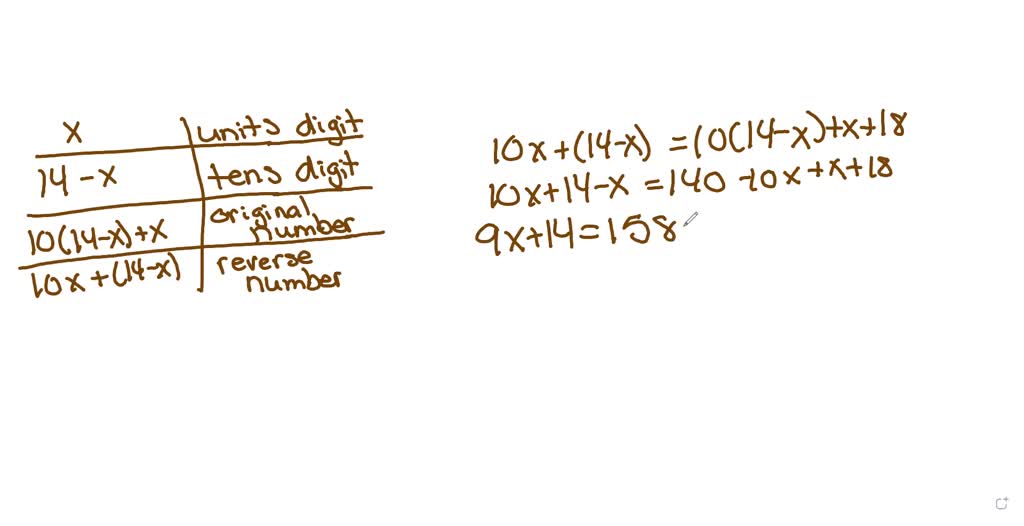 x units digit
14 - x tens digit
10(14-x)+x original number
10x+(14-x) reverse number
10x+(14-x) = 10(14-x)+x+18
10x+14-x = 140 -10x+x+18
9x+14=158